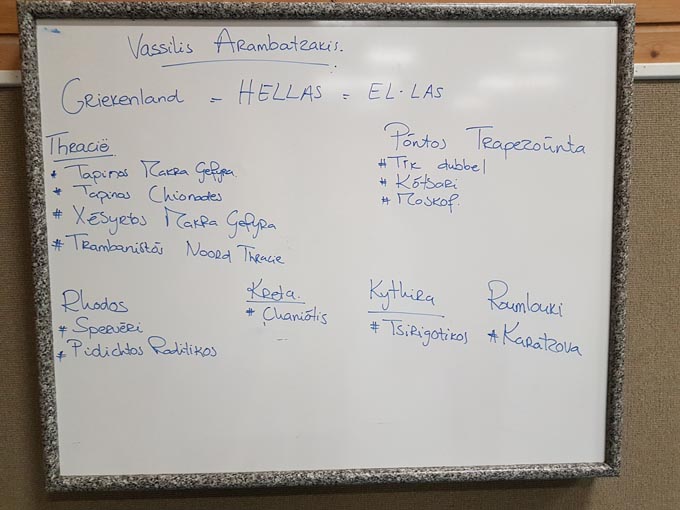 Vassilis Arambatzakis.
Griekenland = HELLAS = EL·LAS
Thracië
* Tapinos Makra Gefyra
* Tapinos Chionades
* Xésyrtos Makra Gefyra
* Trambanistós Noord Thracie
Póntos Trapezoúnta
* Tik dubbel
* Kótsari
* Moskof.
Rhodos
* Spervéri
* Pidichtos Roditikos
Kreta.
* Chaniótis
Kythira
* Tsirigotikos
Roumlouki
* Karatzova